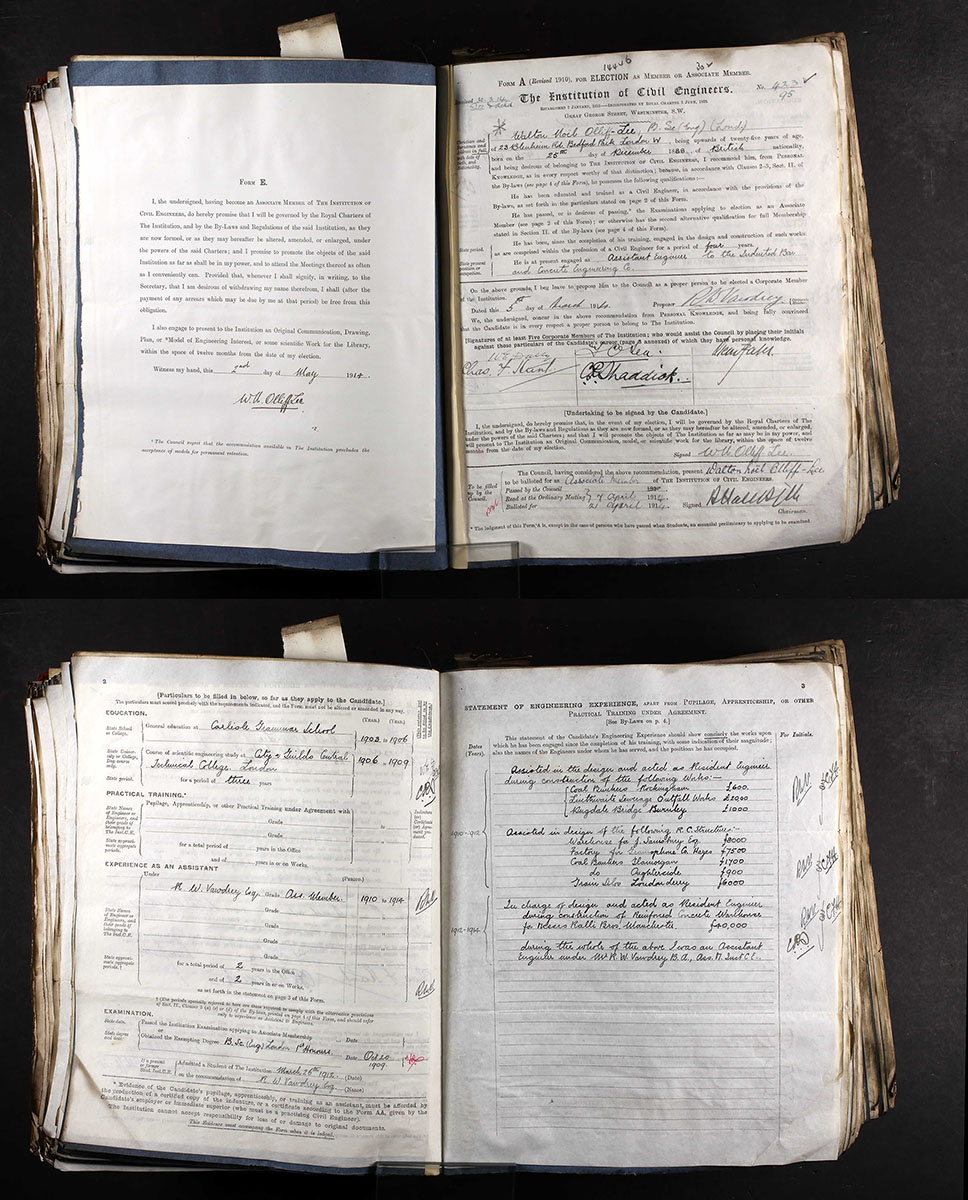 FORM E.
I, the undersigned, having become an ASSOCIATE MEMBER OF THE INSTITUTION OF
CIVIL ENGINEERS, do hereby promise that I will be governed by the Royal Charters of
The Institution, and by the By-Laws and Regulations of the said Institution, as they
are now formed, or as they may hereafter be altered, amended, or enlarged, under
the powers of the said Charters; and I promise to promote the objects of the said
Institution as far as shall be in my power, and to attend the Meetings thereof as often
as I conveniently can. Provided that, whenever I shall signify, in writing, to the
Secretary, that I am desirous of withdrawing my name therefrom, I shall (after the
payment of any arrears which may be due by me at that period) be free from this
obligation.
I also engage to present to the Institution an Original Communication, Drawing,
Plan, or *Model of Engineering Interest, or some Scientific Work for the Library,
within the space of twelve months from the date of my election.
Witness my hand, this 2nd day of May 1914.
W.N. Olliff-Lee
* The Council regret that the accommodation available in The Institution precludes the
acceptance of models for permanent retention.
FORM A (Revised 1910), FOR ELECTION AS MEMBER OR ASSOCIATE MEMBER.
The Institution of Civil Engineers.
No. 433
95
ESTABLISHED 2 JANUARY, 1818—INCORPORATED BY ROYAL CHARTER 3 JUNE, 1828.
GREAT GEORGE STREET, WESTMINSTER, S.W.
Walton Noel Olliff-Lee, B.Sc (Eng) (Lond)
of 23 Blenheim Rd. Bedford Park London W, being upwards of twenty-five years of age,
born on the 25th day of December 1888, of British nationality,
and being desirous of belonging to THE INSTITUTION OF CIVIL ENGINEERS, I recommend him, from PERSONAL
KNOWLEDGE, as in every respect worthy of that distinction; because, in accordance with Clauses 2-3, Sect. II. of
the By-laws (see page 4 of this Form), he possesses the following qualifications:—
He has been educated and trained as a Civil Engineer, in accordance with the provisions of the
By-laws, as set forth in the particulars stated on page 2 of this Form.
He has passed, or is desirous of passing,* the Examinations applying to election as an Associate
Member (see page 2 of this Form); or otherwise has the second alternative qualification for full Membership
stated in Section II. of the By-laws (see page 4 of this Form).
He has been, since the completion of his training, engaged in the design and construction of such works
as are comprised within the profession of a Civil Engineer for a period of four years.
He is at present engaged as Assistant Engineer to the Indented Bar
and Concrete Engineering Co.
On the above grounds, I beg leave to propose him to the Council as a proper person to be elected a Corporate Member
of the Institution.
Dated this 5th day of March 1914. Proposer R W Vawdrey
We, the undersigned, concur in the above recommendation from PERSONAL KNOWLEDGE, and being fully convinced
that the Candidate is in every respect a proper person to belong to The Institution.
[Signatures of at least Five Corporate Members of The Institution; who would assist the Council by placing their initials
against those particulars of the Candidate's career (page 3 annexed) of which they have personal knowledge.
Chas. F. Hart
[Undertaking to be signed by the Candidate.]
I, the undersigned, do hereby promise that, in the event of my election, I will be governed by the Royal Charters of The
Institution, and by the By-Laws and Regulations as they are now formed, or as they may hereafter be altered, amended, or enlarged,
under the powers of the said Charters; and that I will promote the objects of The Institution as far as may be in my power, and
will present to The Institution an Original Communication, model, or scientific work for the library, within the space of twelve
months from the date of my election.
Signed W.N. Olliff-Lee.
To be filled up by the Council.
The Council, having considered the above recommendation, present Walton Noel Olliff-Lee
to be balloted for as Associate Member of THE INSTITUTION OF CIVIL ENGINEERS.
Passed by the Council
Read at the Ordinary Meeting 7 April 1914
Balloted for 21 April 1914. Signed
Chairman.
* The lodgment of this Form A is, except in the case of persons who have passed when Students, an essential preliminary to applying to be examined.
2
[Particulars to be filled in below, so far as they apply to the Candidate.]
The particulars must accord precisely with the requirements indicated, and the Form must not be altered or amended in any way.
EDUCATION.
(Year.) (Year.)
State School or College.
General education at Carlisle Grammar School
1903 to 1906
State University or College, Day course only.
Course of scientific engineering study at City & Guilds Central
Technical College. London
1906 to 1909
State period.
for a period of three years
PRACTICAL TRAINING.*
Pupilage, Apprenticeship, or other Practical Training under Agreement with
Grade
Grade
for a total period of years in the Office
and of years in or on Works.
EXPERIENCE AS AN ASSISTANT
Under (Years.)
R. W. Vawdrey Esq. Grade Ass. Member. 1910 to 1914
Grade
Grade
Grade
Grade
for a total period of 2 years in the Office
and of 2 years in or on Works.
as set forth in the statement on page 3 of this Form.
EXAMINATION.
State date.
Passed the Institution Examination applying to Associate Membership ... Date
or
State degree and date:
Obtained the Exempting Degree B.Sc. (Eng) London 1st Honours. Date Oct 20 1909.
Admitted a Student of The Institution March 26th 1912 (Date)
on the recommendation of R. W. Vawdrey Esq. (Name)
* Evidence of the Candidate's pupilage, apprenticeship, or training as an assistant, must be afforded by
the production of a certified copy of the indenture, or a certificate according to the Form AA, given by the
Candidate's employer or immediate superior (who must be a practising Civil Engineer).
The Institution cannot accept responsibility for loss of or damage to original documents.
This Evidence must accompany the Form when it is lodged.
3
STATEMENT OF ENGINEERING EXPERIENCE, APART FROM PUPILAGE, APPRENTICESHIP, OR OTHER
PRACTICAL TRAINING UNDER AGREEMENT.
[See By-Laws on p. 4.]
Dates (Years).
This statement of the Candidate's Engineering Experience should show concisely the works upon
which he has been engaged since the completion of his training, with some indication of their magnitude;
also the names of the Engineers under whom he has served, and the positions he has occupied.
For Initials.
1910-1912
Assisted in the design and acted as Resident Engineer
during construction of the following Works:—
Coal Bunkers Rockingham £600.
Linthwaite Sewerage Outfall Works £2900
Kingdale Bridge Burnley £1000
Assisted in design of the following R.C. Structures:—
Warehouse for J. Sainsbury Esq. £8000
Factory for Gramophone Co. Hayes £7500
Coal Bunkers, Glamorgan £1700
do Aughterside £900
Grain Silos Londonderry £6000
1912-1914
In charge of design and acted as Resident Engineer
during construction of Reinforced Concrete Warehouse
for Messrs Ralli Bros. Manchester. £40,000
during the whole of the above I was an Assistant
Engineer under Mr. R. W. Vawdrey B.A., Ass. M. Inst C.E.